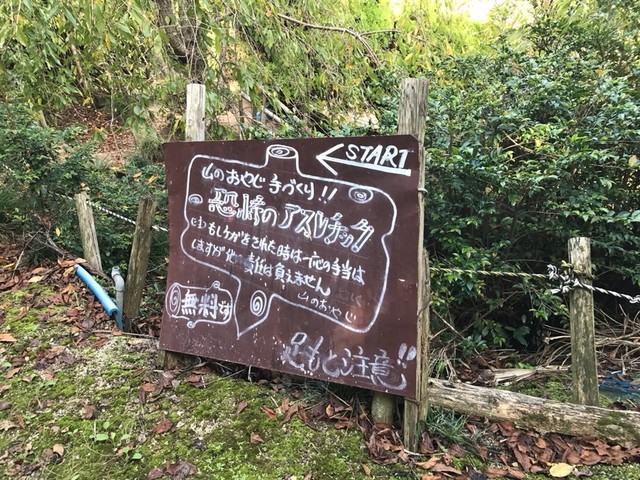 START
山のおやじ手づくり!!
恐怖のアスレチック
もしケガをされた時は一応の手当は
しますが他の責任は負えません
山のおやじ
無料です
足もと注意!!